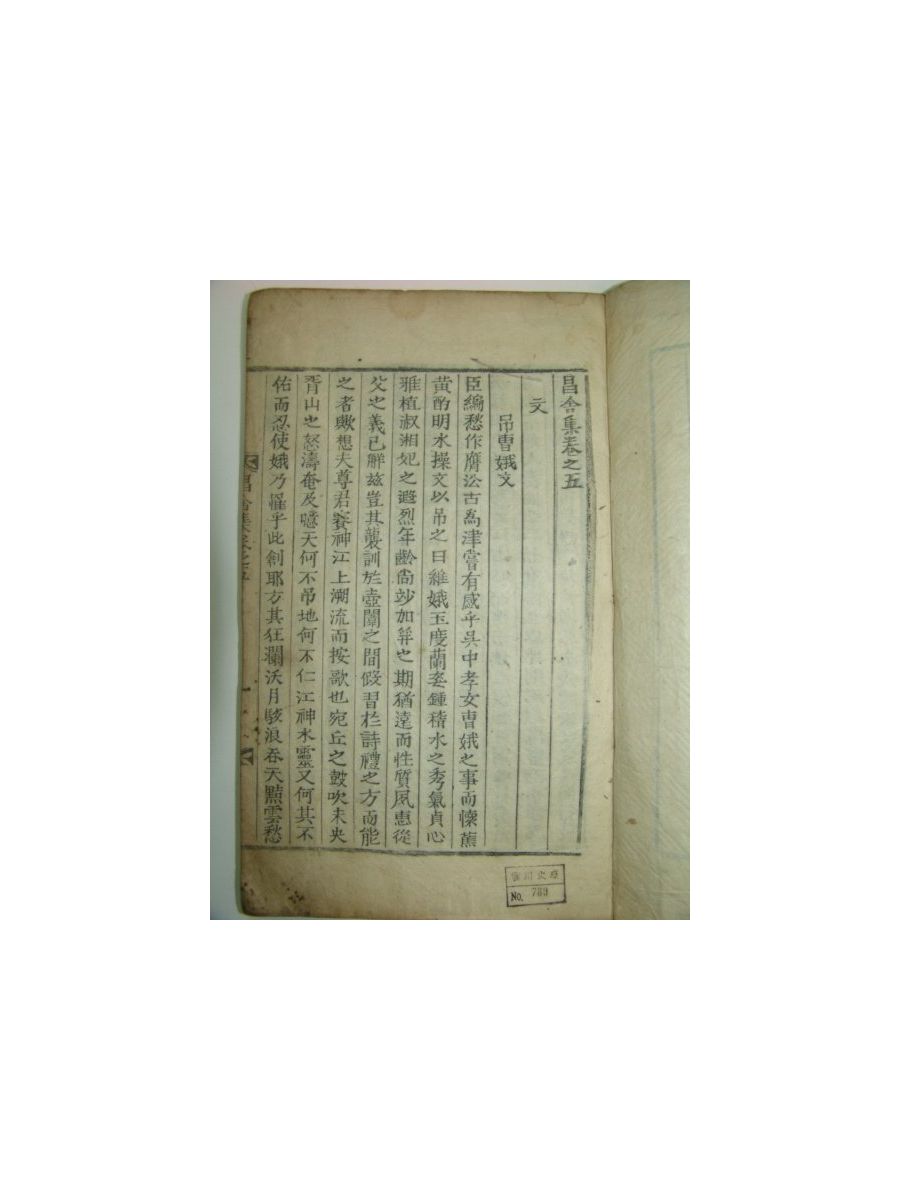 昌舍集卷之五
文
吊曺娥文
臣編愁作賡泌古爲津嘗有感乎吳中孝女曺娥之事而懷蕉
黃酌明水操文以吊之曰維娥玉度蘭姿鍾積水之秀氣貞心
雅植叔湘妃之遐烈年齡尙玅加笄之期猶遠而性質夙惠從
父之義已解玆豈其襲訓於壼閫之間假習於詩禮之方而能
之者歟想夫尊君賽神江上溯流而按歌也宛丘之鼓吹未央
胥山之怒濤奄及噫天何不吊地何不仁江神水靈又何其不
佑而忍使娥乃罹乎此創耶方其狂瀾沃月駭浪呑天黯雲愁
昌舍集卷之五
No. 789